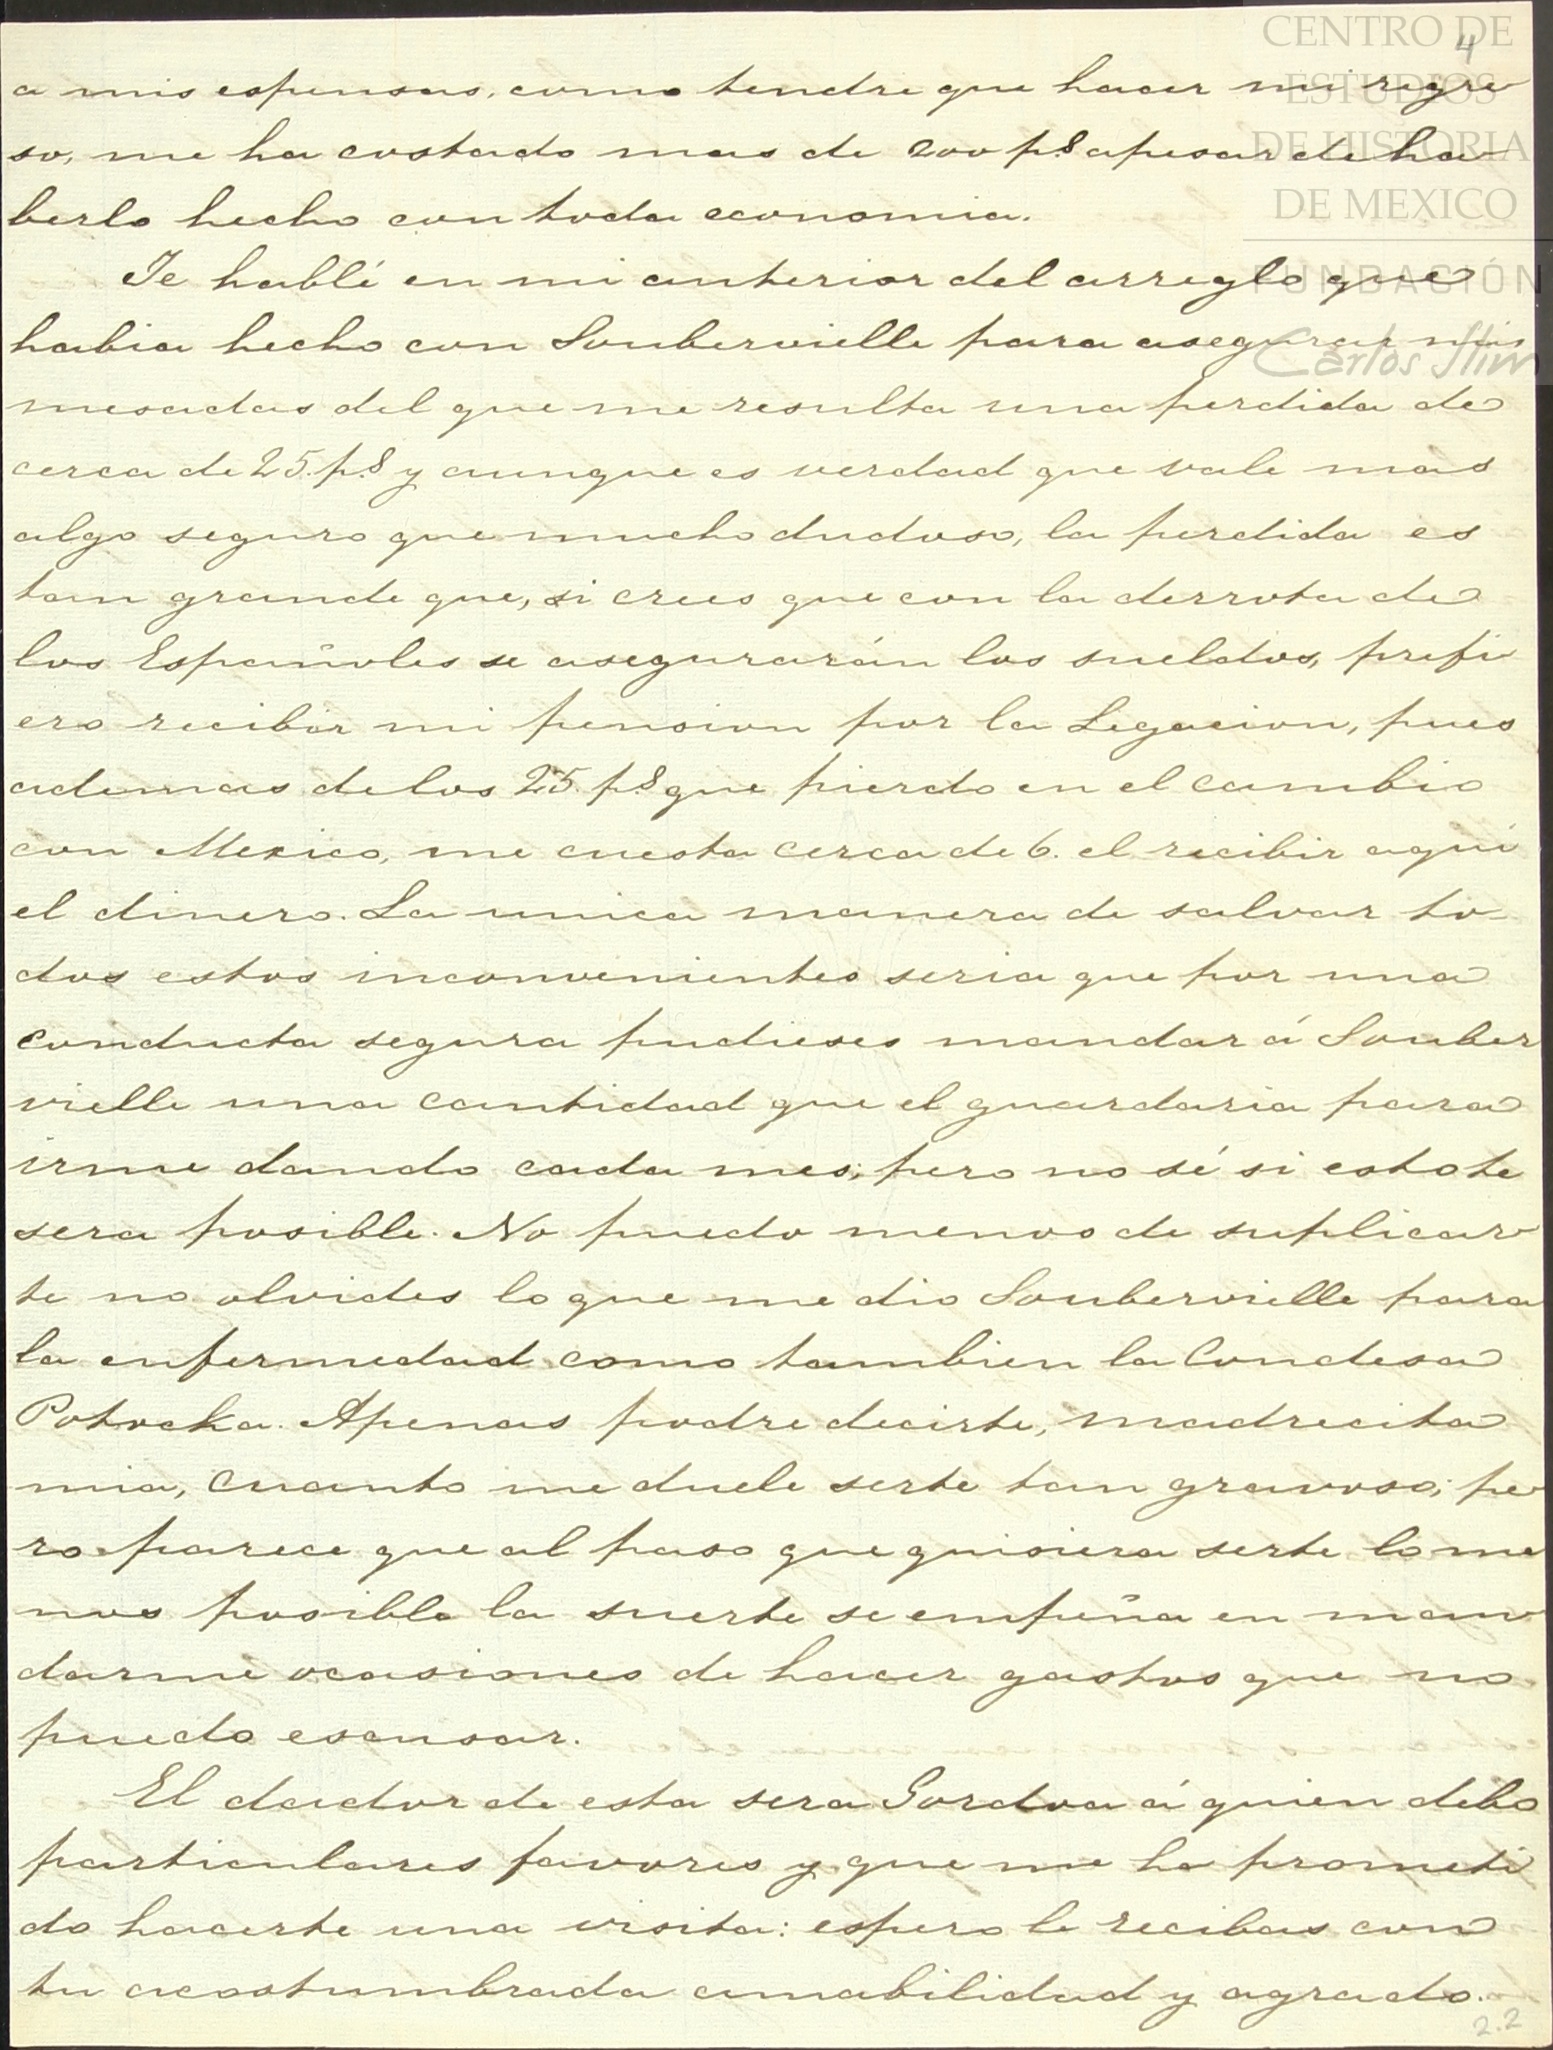 CENTRO DE
ESTUDIOS
DE HISTORIA
DE MEXICO
FUNDACIÓN
Carlos Slim
4
a mis espensas, como tendre que hacer mi regre
so, me ha costado mas de 200 p.s apesar de ha-
berlo hecho con toda economia.
Te hablé en mi anterior del arreglo que
habia hecho con Soubervielle para asegurar mis
mesadas del que me resulta una perdida de
cerca de 25. p.s y aunque es verdad que vale mas
algo seguro que mucho dudoso, la perdida es
tan grande que, si crees que con la derrota de
los Españoles se asegurarán los sueldos, prefi
ero recibir mi pension por la Legacion, pues
ademas de los 25. p.s que pierdo en el cambio
con Mexico, me cuesta cerca de 6. el recibir aquí
el dinero. La unica manera de salvar to-
dos estos inconvenientes seria que por una
conducta segura pudieses mandar á Souber
vielle una cantidad que el guardaria para
irme dando cada mes; pero no sé si esto te
sera posible. No puedo menos de suplicar
te no olvides lo que me dio Soubervielle para
la enfermedad como tambien la Condesa
Potocka. Apenas podre decirte, madrecita
mia, cuanto me duele serte tan gravoso; pe
ro parece que al paso que quisiera serte lo me
nos posible la suerte se empeña en man
darme ocasiones de hacer gastos que no
puedo escusar.
El dador de esta sera Gordoa á quien debo
particulares favores y que me ha prometi
do hacerte una visita: espero le recibas con
tu acostumbrada amabilidad y agrado.
2.2